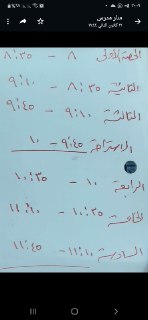 منار مدرس
الحصة الاولى ٨ - ٨:٣٥
الثانية ٨:٣٥ - ٩:١٠
الثالثة ٩:١٠ - ٩:٤٥
الاستراحة ٩:٤٥ - ١٠
الرابعة ١٠ - ١٠:٣٥
الخامسة ١٠:٣٥ - ١١:١٠
السادسة ١١:١٠ - ١١:٤٥